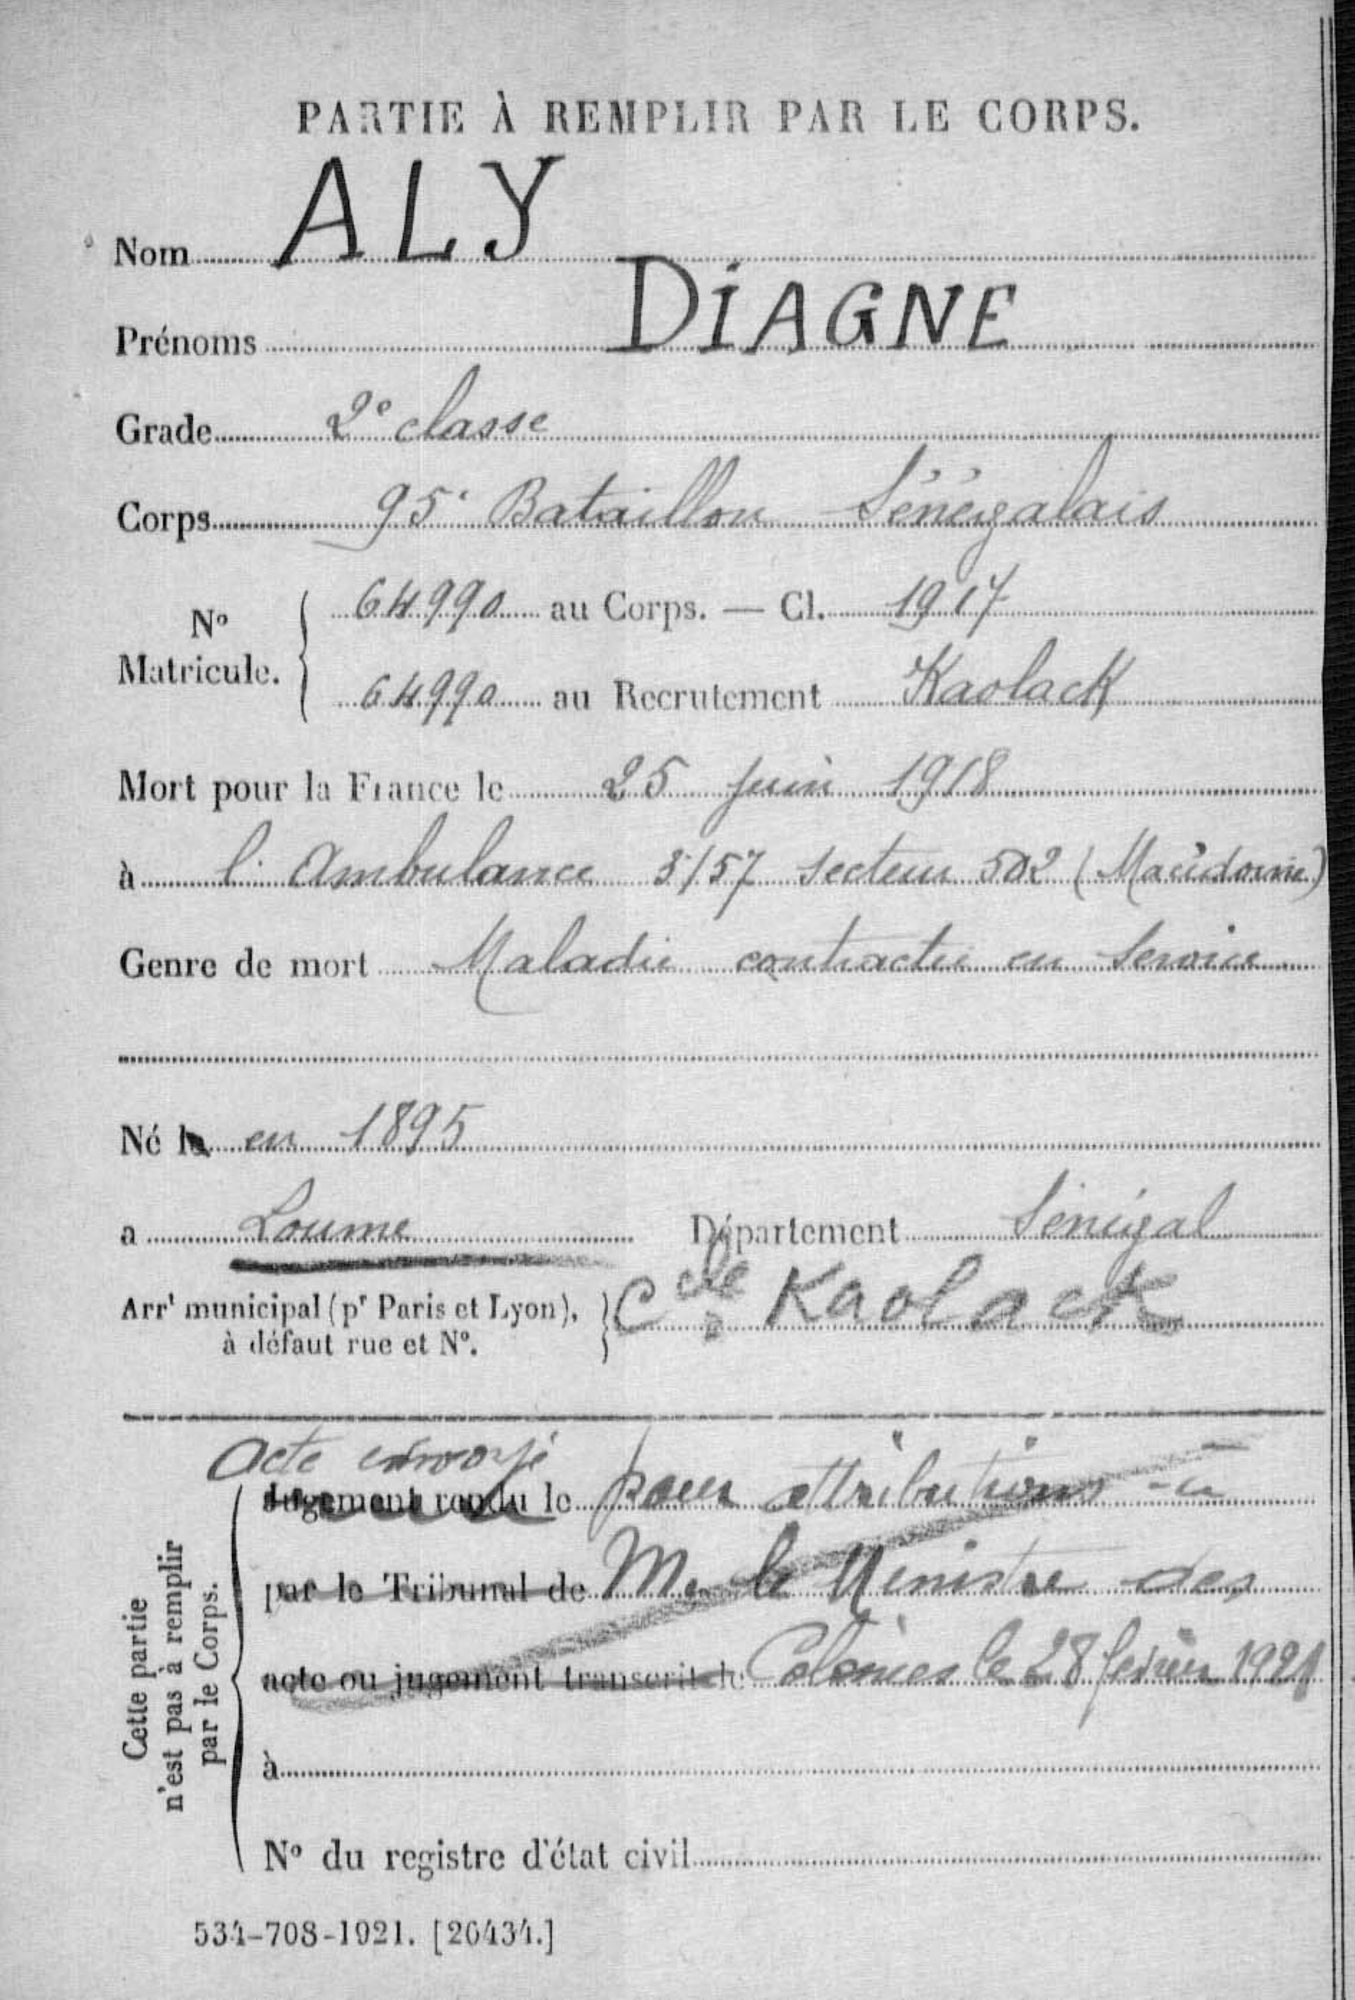 PARTIE À REMPLIR PAR LE CORPS.
Nom ALY
Prénoms DIAGNE
Grade 2e classe
Corps 95e Bataillon Sénégalais
No Matricule. 64990 au Corps. — Cl. 1917
64990 au Recrutement Kaolack
Mort pour la France le 25 juin 1918
à l'Ambulance 3/57 Secteur 502 (Macédoine)
Genre de mort Maladie contractée en Service
Né le en 1895
a Loume Département Sénégal
Arrt municipal (pr Paris et Lyon), à défaut rue et No. Cle Kaolack
Acte envoyé
Jugement rendu le pour attributions à
par le Tribunal de Mr le Ministre des
acte ou jugement transcrit le Colonies le 28 février 1921
à
No du registre d'état civil
Cette partie n'est pas à remplir par le Corps.
534-708-1921. [26434.]